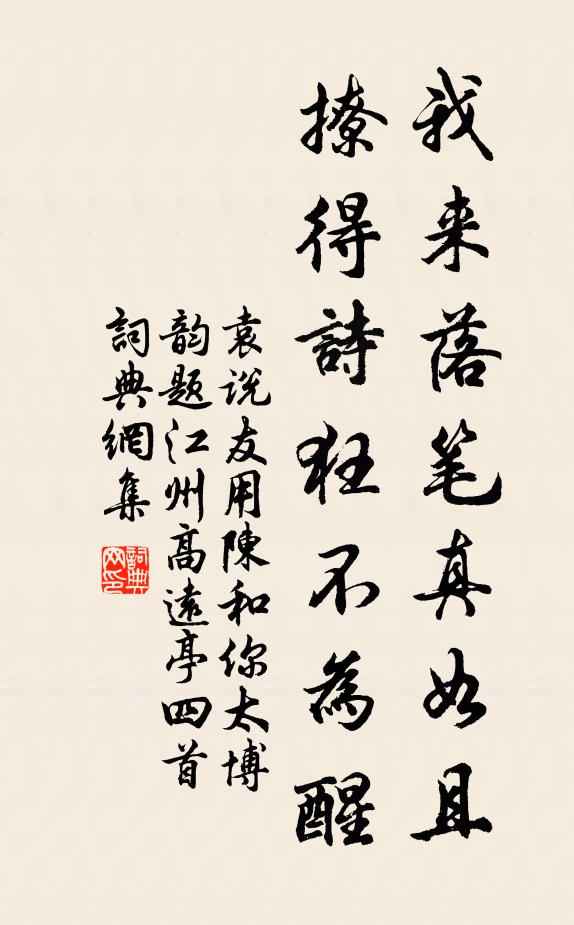 我来落笔真如且
撩得詩狂不為醒
袁说友用陳和你太博
韵题江州高遠亭四首
词典網集
詞典网印